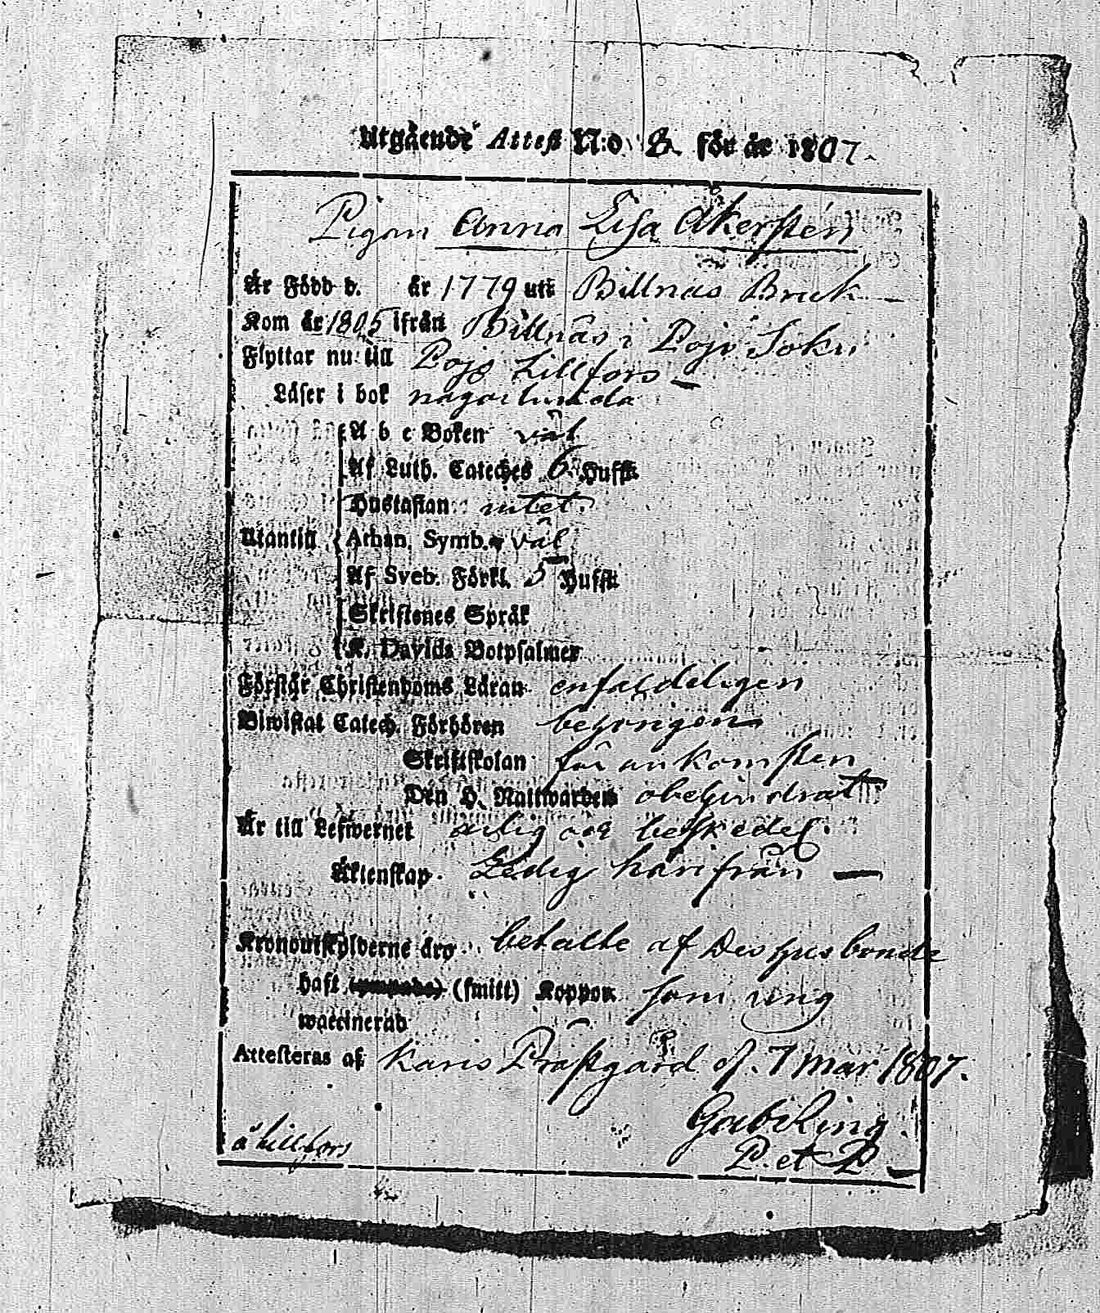 Utgående Attest N:o 8. för år 1807.
Pigan Anna Lisa Åkersten
Är Född d. år 1779 uti Billnäs Bruk
Kom år 1805 ifrån Billnäs i Pojo Sokn
Flyttar nu till Pojo Fillfors
Läser i bok någorlunda
A b c Boken väl
Af Luth. Cateches 6. Hufst.
Hustaflan intet.
Utantill Athan. Symb. väl
Af Sveb. Förkl. 5 Hufst.
Skriftenes Språk
K. Davids Botpsalmer
Förstår Christendoms Läran enfaldeligen
Biwistat Catech. Förhören
Skriftskolan för ankomsten
Den H. Nattwarden obehindrat
Är till Lefwernet ärlig och beskedel.
Äktenskap. Ledig härifrån
Kronoutskylderne äro betalte af Des husbonde
haft (ympade) (smitt) Koppor som ung
waccinerad
Attesteras af Karis Prästgård d. 7 Mar 1807.
Gab. Ring
P. et P.
å Fillfors